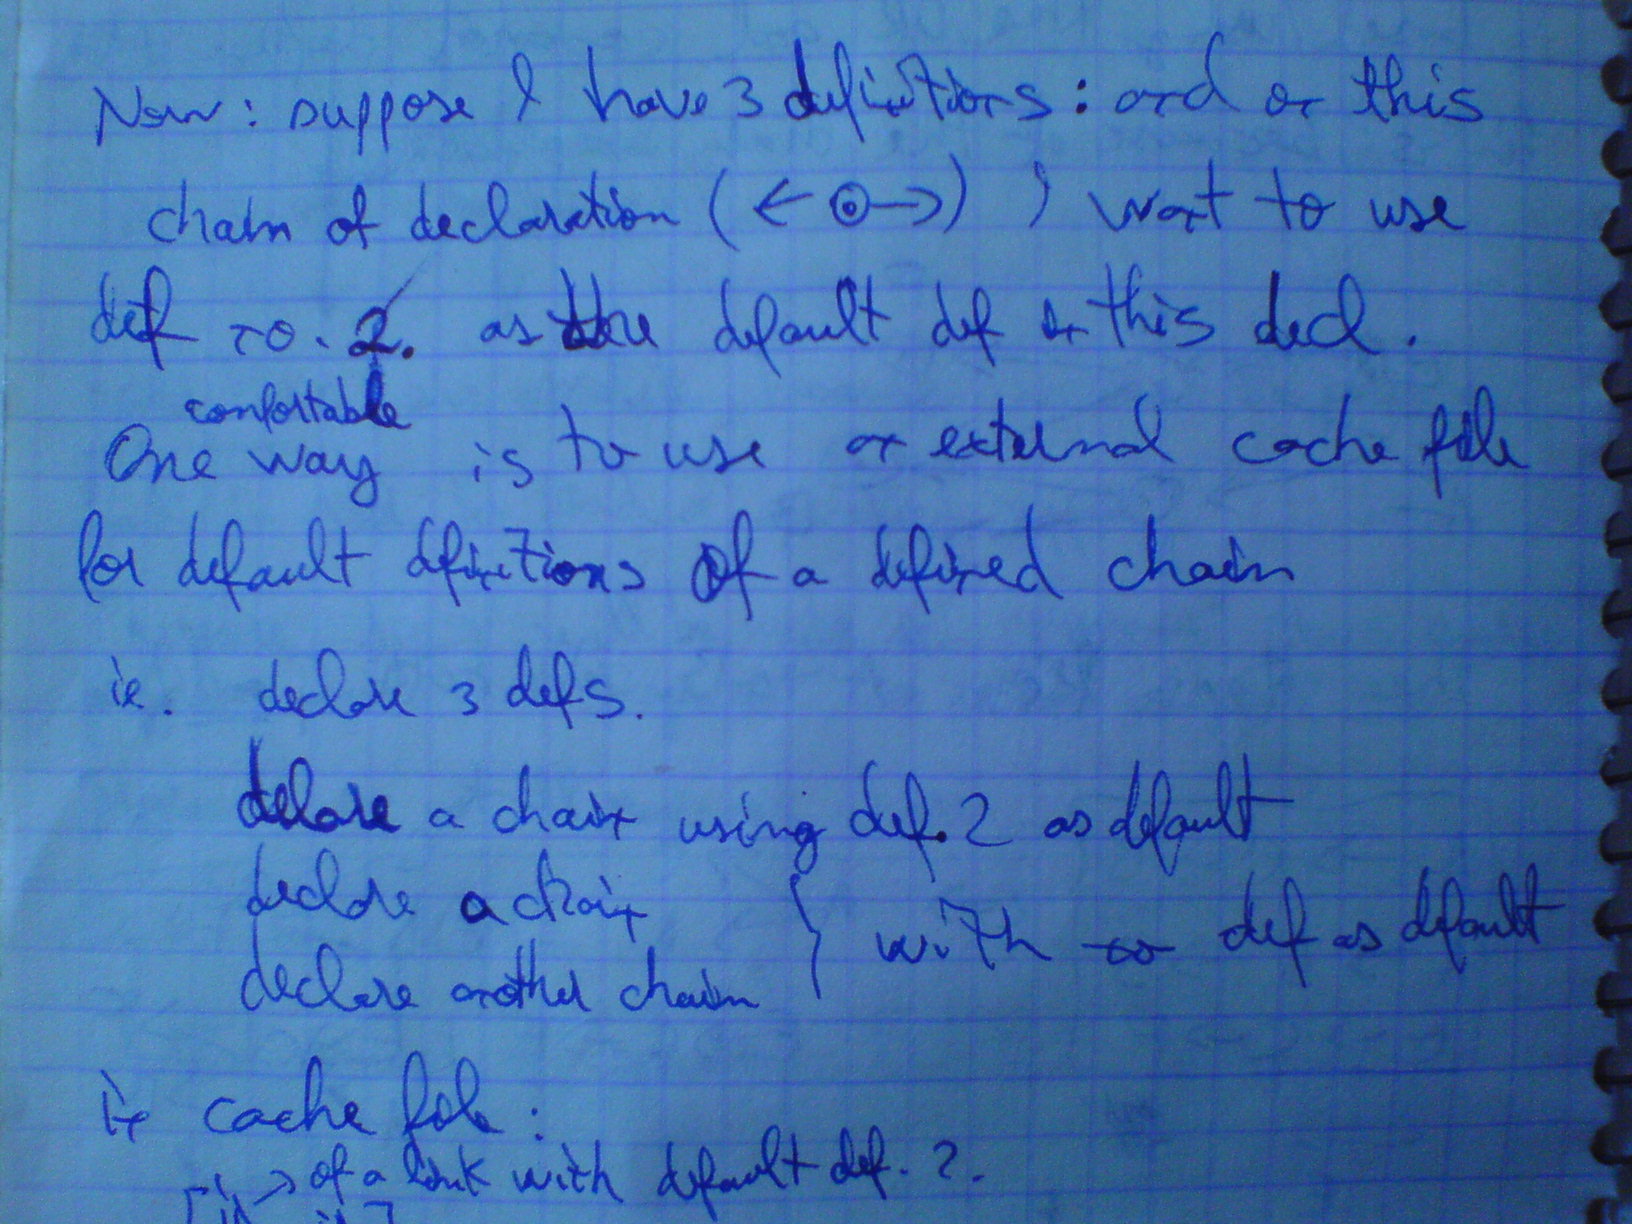 Now: suppose I have 3 definitions: and on this
chain of declaration (← ⊙ →) I want to use
def no. 2. as the default def on this decl.
confortable
One way is to use an external cache file
for default definitions of a defined chain
ie. declare 3 defs.
declare a chain using def. 2 as default
declare a chain
declare another chain } with no def as default
in cache file:
→ of a link with default def. 2.